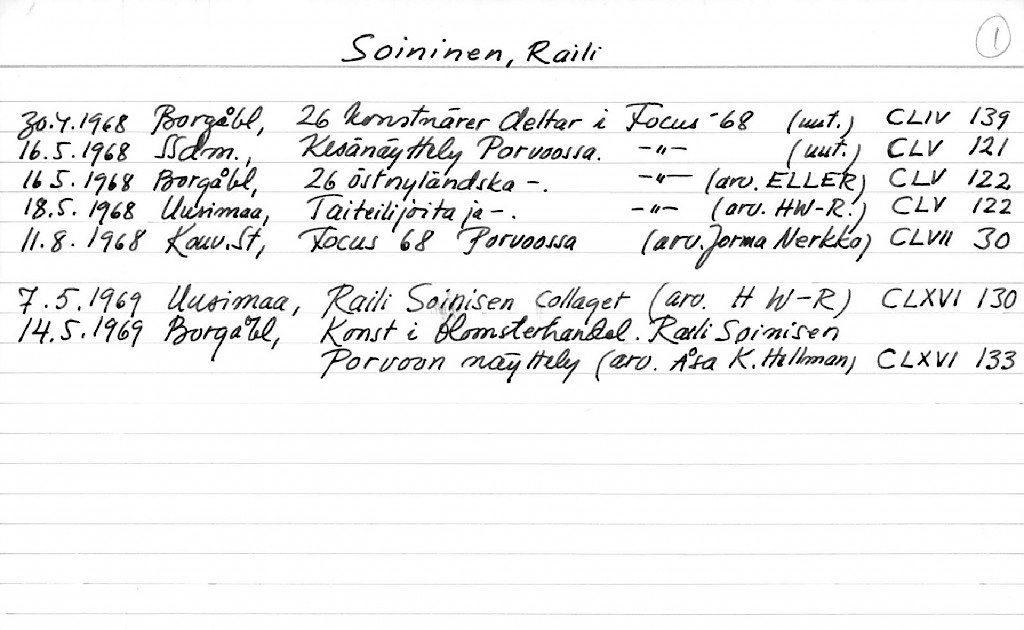 Soininen, Raili
1
30.4.1968 Borgåbl, 26 konstnärer deltar i Focus -68 (uut.) CLIV 139
16.5.1968 SSdm., Kesänäyttely Porvoossa. -"- (uut.) CLV 121
16 5. 1968 Borgåbl, 26 östnyländska -. -"- (arv. ELLER) CLV 122
18.5. 1968 Uusimaa, Taiteilijoita ja -. -"- (arv. HW-R.) CLV 122
11.8. 1968 Kouv.St, Focus 68 Porvoossa (arv. Jorma Nerkko) CLVII 30
7.5.1969 Uusimaa, Raili Soinisen collaget (arv. H W-R) CLXVI 130
14.5.1969 Borgåbl, Konst i blomsterhandel. Raili Soinisen
Porvoon näyttely (arv. Åsa K. Hellman) CLXVI 133